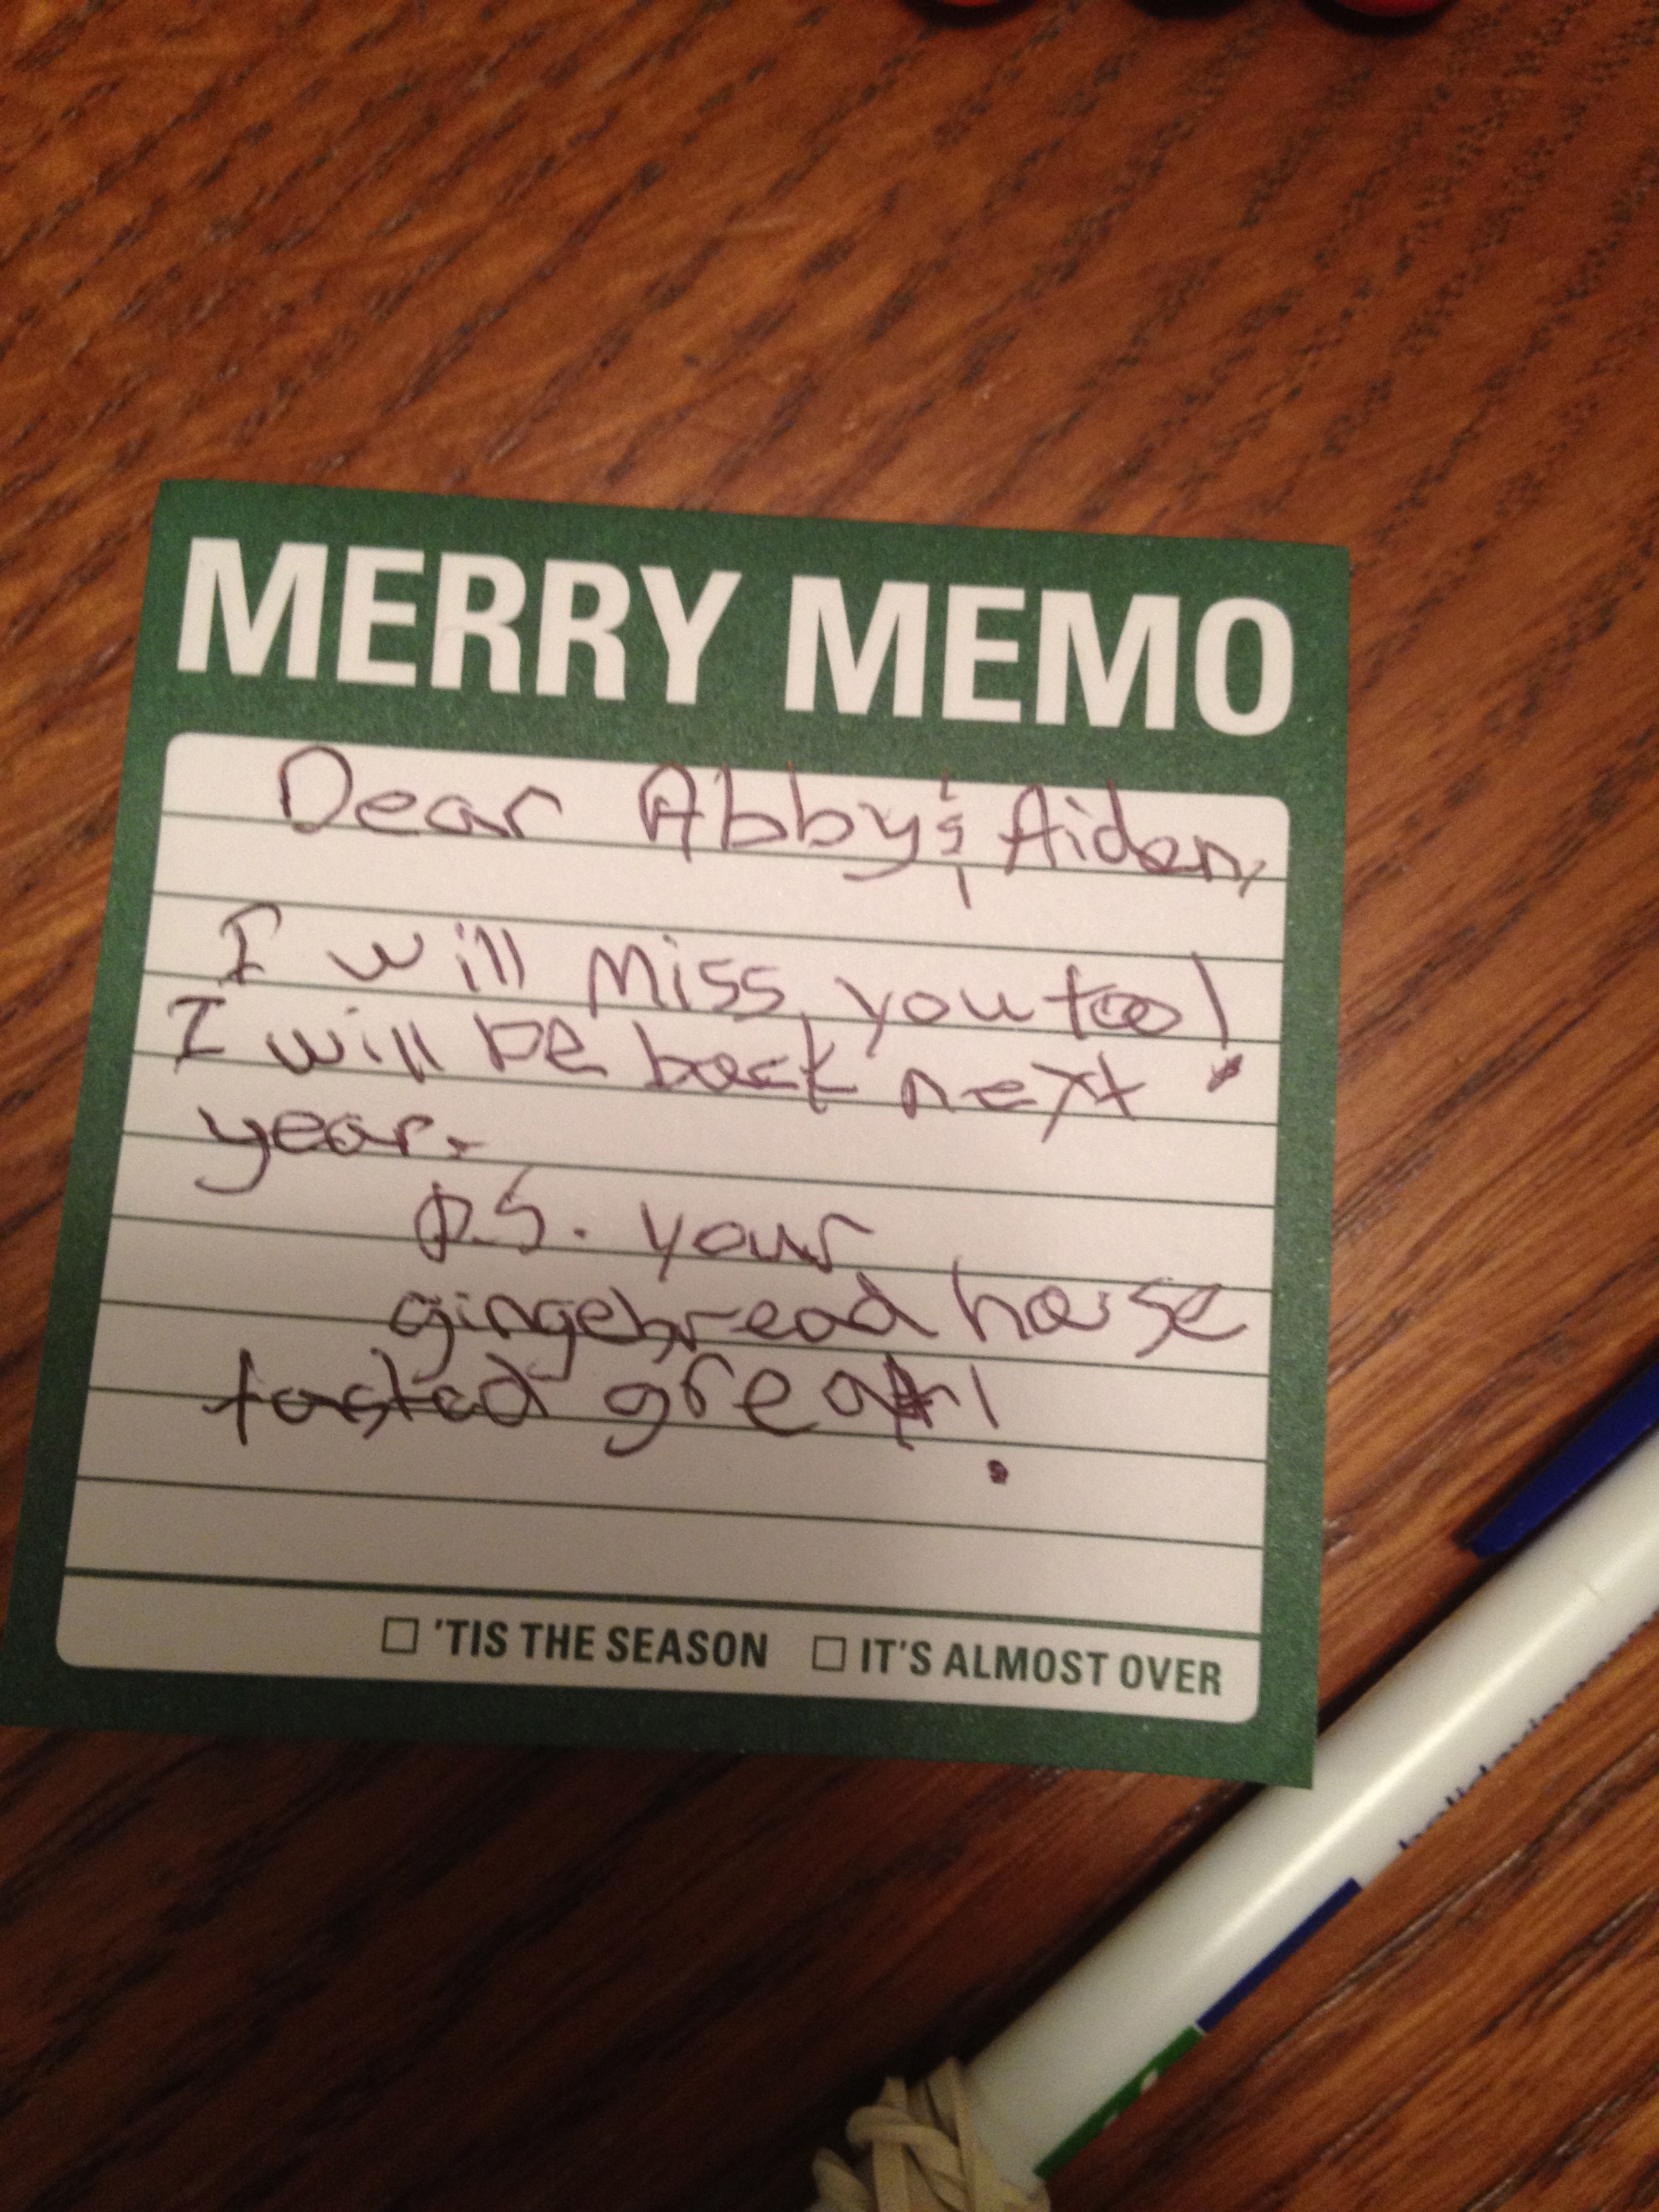 MERRY MEMO
Dear Abby & Aiden,
I will miss you too!
I will be back next
year.
P.S. your
gingebread house
tasted great!
☐ 'TIS THE SEASON ☐ IT'S ALMOST OVER